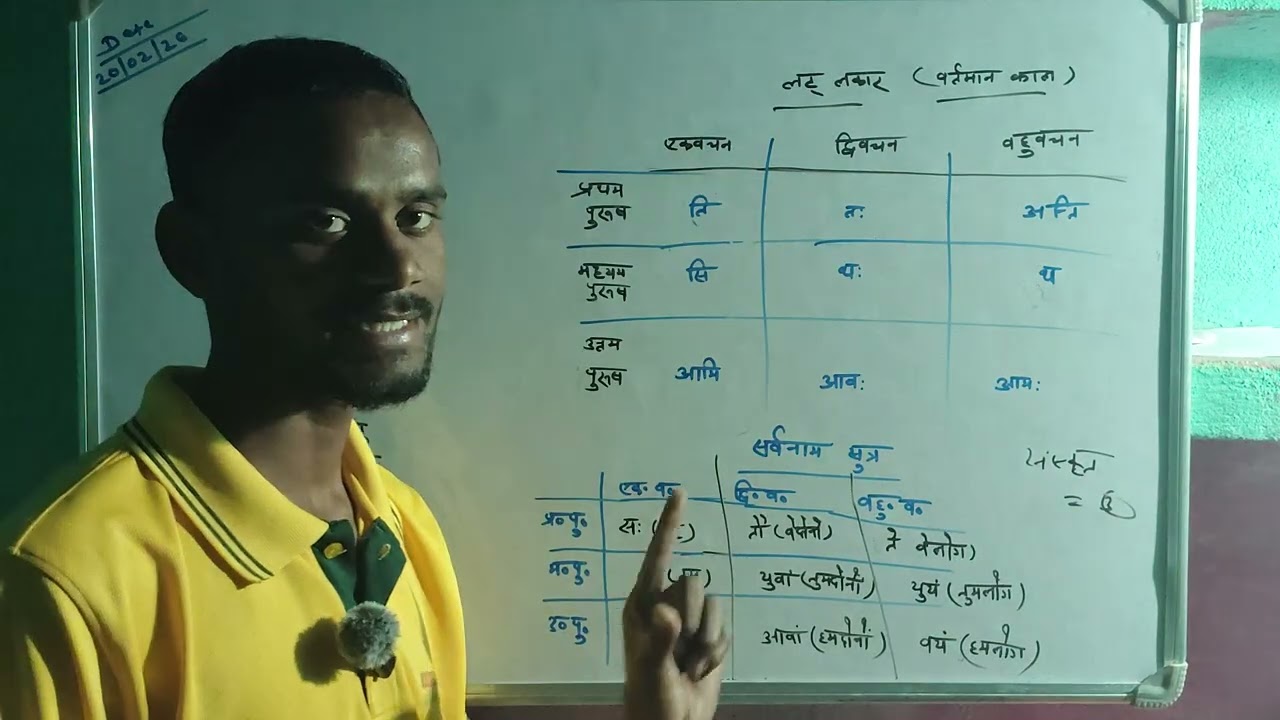 Date
20/02/26
लट् लकार (वर्तमान काल)
एकवचन द्विवचन वहुवचन
प्रथम
पुरूष ति तः अन्ति
मध्यम सि थः थ
पुरूष
उत्तम
पुरूष आमि आवः आमः
सर्वनाम सुत्र
संस्कृत
=
एक॰ व॰ द्वि॰ व॰ वहु॰ व॰
प्र॰ पु॰ सः तौ (वेदोनो) ते वेलोग)
म॰ पु॰ युवां (तुमदोनों) युयं (तुमलोग)
उ॰ पु॰ आवां (हमदोनों) वयं (हमलोग)